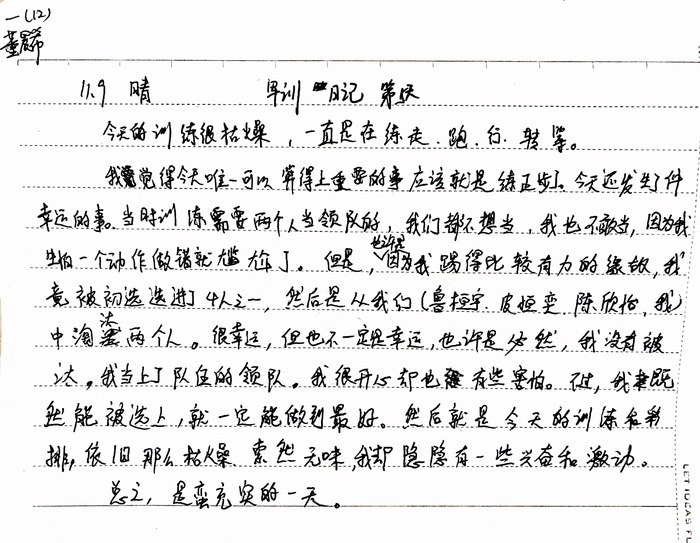 一(12)
董勗希
11.9 晴 军训日记 第1天
今天的训练很枯燥，一直是在练走、跑、行、转等。
我觉得今天唯一可以算得上重要的事应该就是练正步了。今天还发生了件
幸运的事。当时训练需要两个人当领队的，我们都不想当，我也不敢当，因为我
生怕一个动作做错就尴尬了。但是，也许是因为我踢得比较有力的缘故，我
竟被初选选进了4人之一，然后是从我们(鲁桓宇、皮姮奕、陈欣怡、我)
中淘汰两个人。很幸运，但也不一定是幸运，也许是必然，我没有被
汰。我当上了队伍的领队。我很开心却也有些害怕。不过，我既
然能被选上，就一定能做到最好。然后就是今天的训练和彩
排，依旧那么枯燥 索然无味，我却隐隐有一些兴奋和激动。
总之，是蛮充实的一天。
LET IDEAS FL